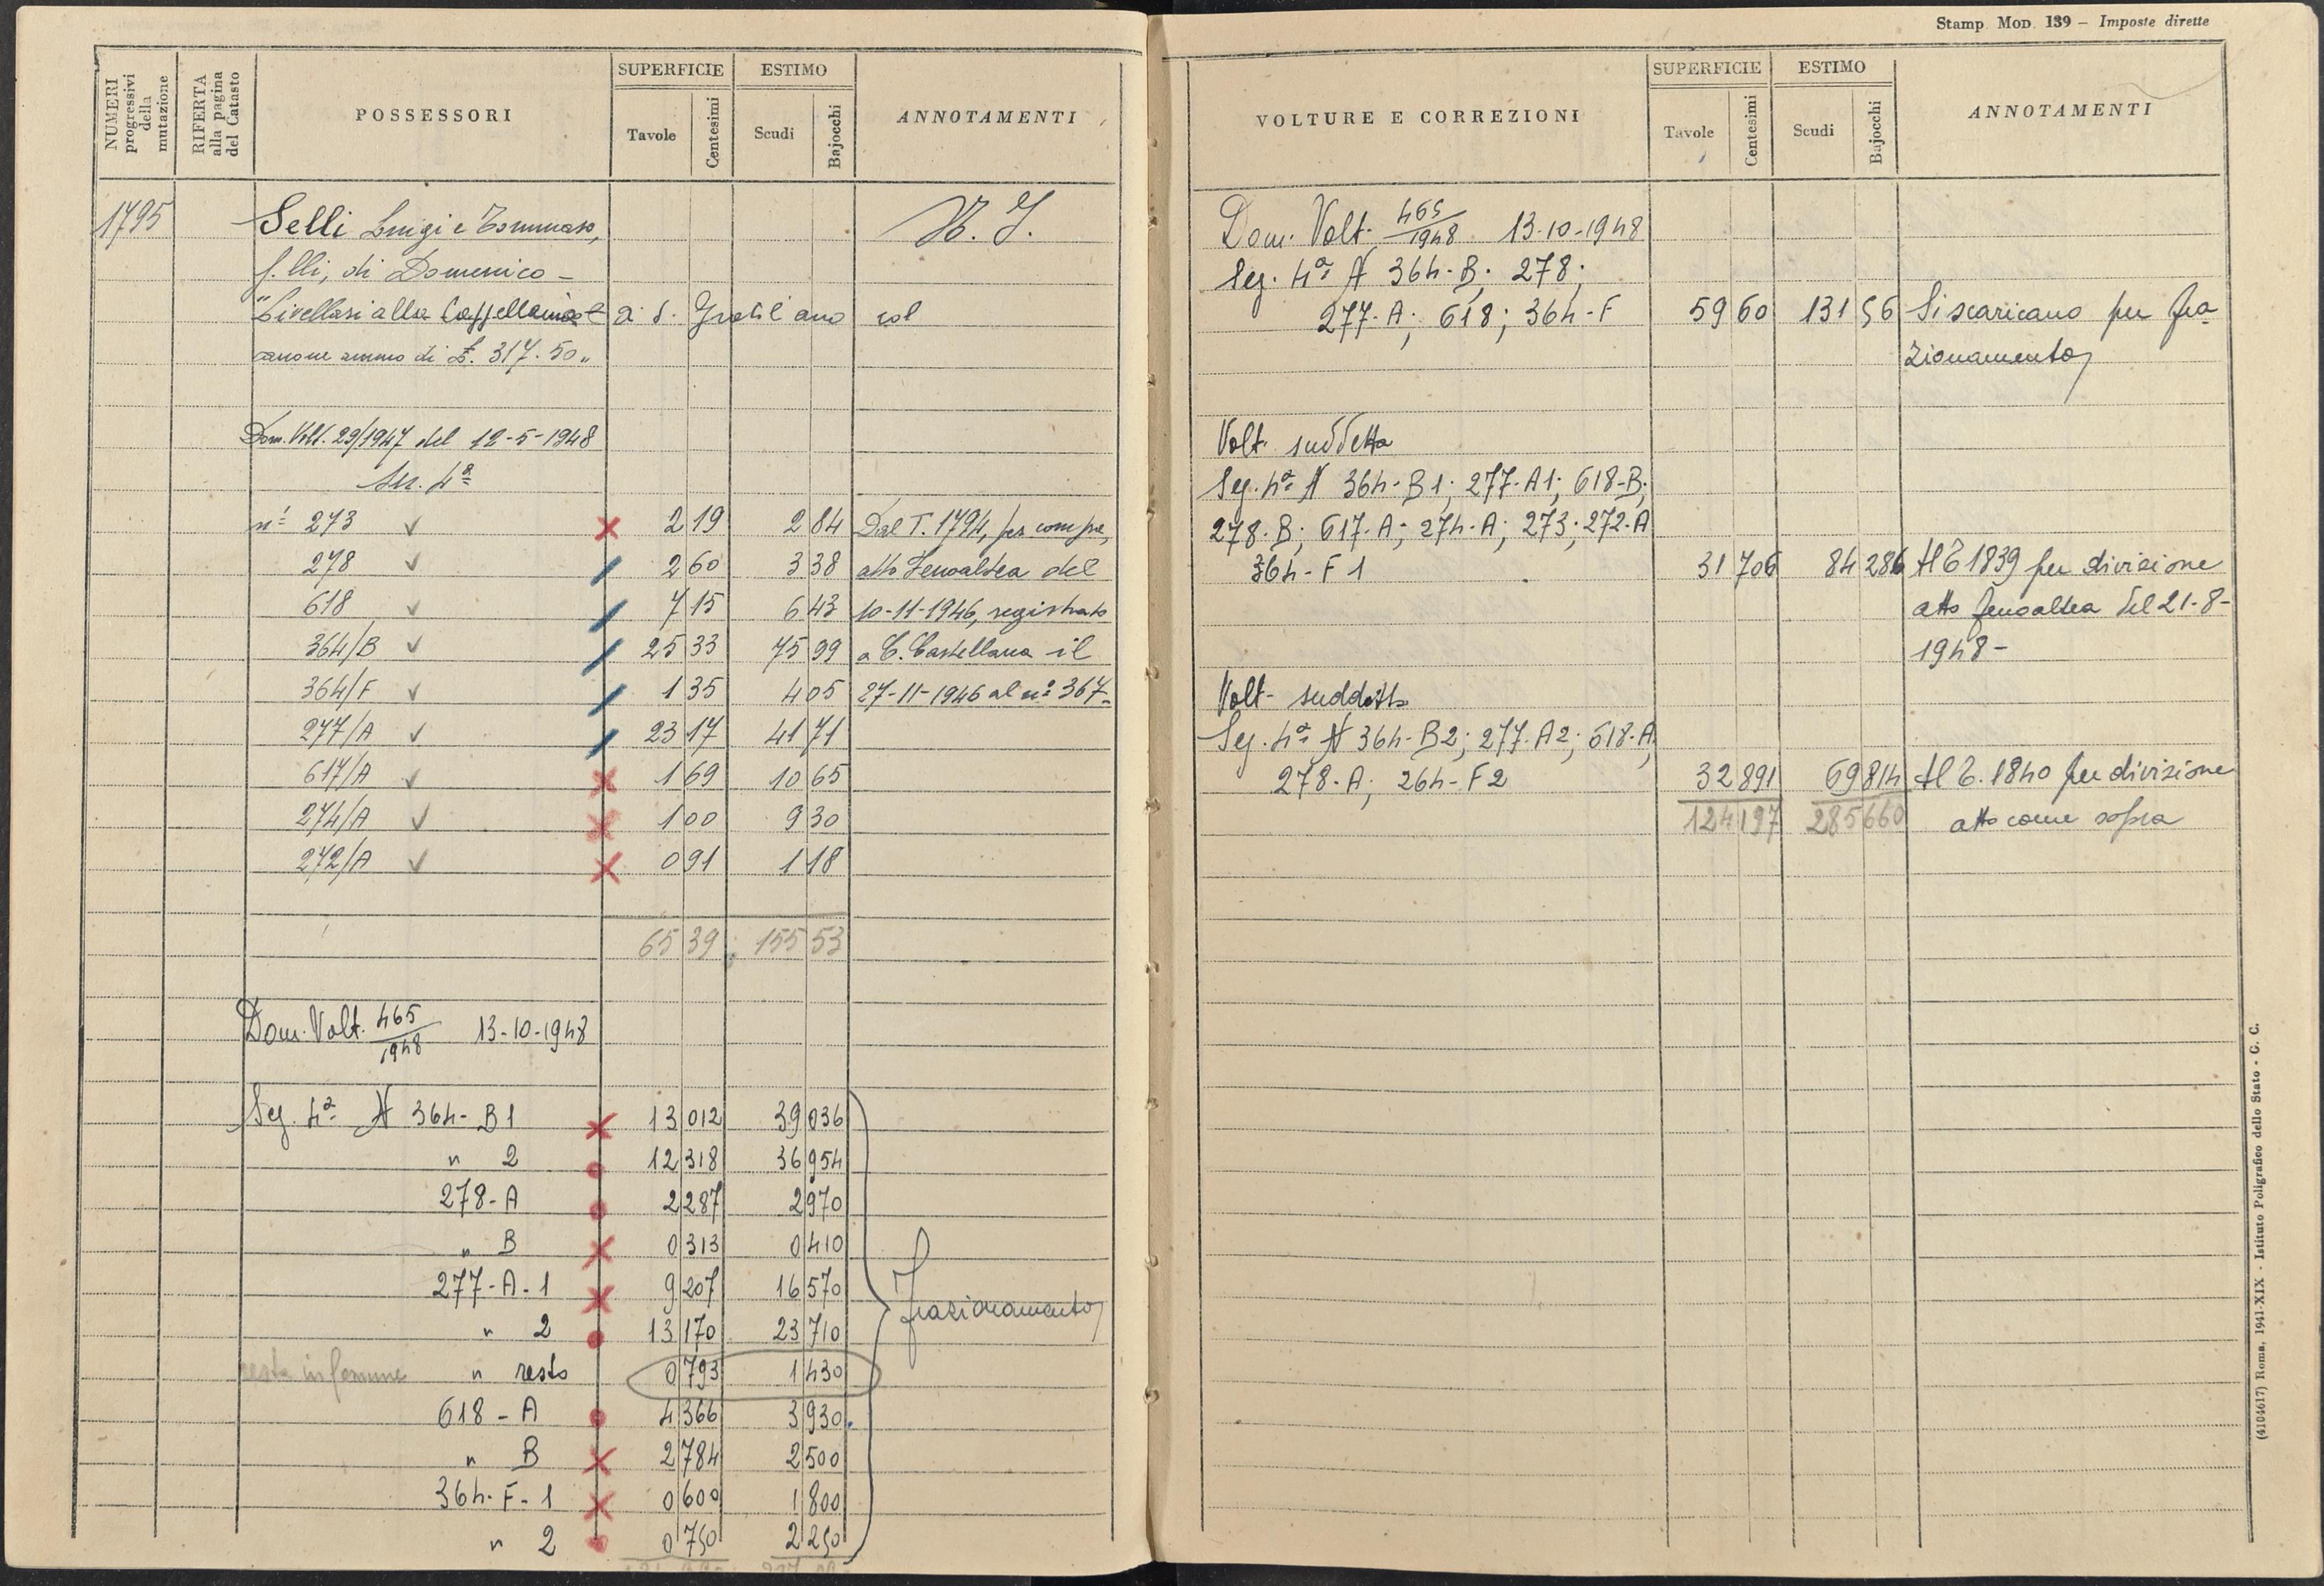 NUMERI progressivi della mutazione
RIFERTA alla pagina del Catasto
POSSESSORI
SUPERFICIE
Tavole
Centesimi
ESTIMO
Scudi
Bajocchi
ANNOTAMENTI
1795
Selli Luigi e Tommaso,
f.lli, di Domenico -
"Livellari alla Cappellania di S. Gratiliano col
canone annuo di £. 317.50"
Dom. Volt. 29/1947 del 12-5-1948
Sez. 4ª
nⁱ 273 2 19 2 84 Dal T. 1794, per compra,
278 2 60 3 38 atto Fenoaltea del
618 7 15 6 43 10-11-1946, registrato
364/B 25 33 75 99 a C. Castellana il
364/F 1 35 4 05 27-11-1946 al nº 367-
277/A 23 17 41 71
617/A 1 69 10 65
274/A 1 00 9 30
272/A 0 91 1 18
65 39 155 53
Dom. Volt. 465/1948 13-10-1948
Sez. 4ª N 364-B1 13 012 39 036
" 2 12 318 36 954
278-A 2 287 2 970
" B 0 313 0 410
277-A-1 9 207 16 570
" 2 13 170 23 710
resta in comune " resto 0 793 1 430
618-A 4 366 3 930
" B 2 784 2 500
364-F-1 0 600 1 800
" 2 0 750 2 250
frazionamento
Stamp. Mod. 139 - Imposte dirette
VOLTURE E CORREZIONI
SUPERFICIE
Tavole
Centesimi
ESTIMO
Scudi
Bajocchi
ANNOTAMENTI
Dom. Volt. 465/1948 13-10-1948
Sez. 4ª N 364-B; 278;
277-A; 618; 364-F 59 60 131 56 Si scaricano per fra
zionamento
Volt. suddetta
Sez. 4ª N 364-B1; 277-A1; 618-B;
278-B; 617-A; 274-A; 273; 272-A
364-F1 31 706 84 286 Al T 1839 per divisione
atto Fenoaltea del 21-8-
1948-
Volt. suddetta
Sez. 4ª N 364-B2; 277-A2; 618-A
278-A; 264-F2 32 891 69 814 Al T. 1840 per divisione
124 197 285 660 atto come sopra
(4104617) Roma, 1941-XIX - Istituto Poligrafico dello Stato - G. C.